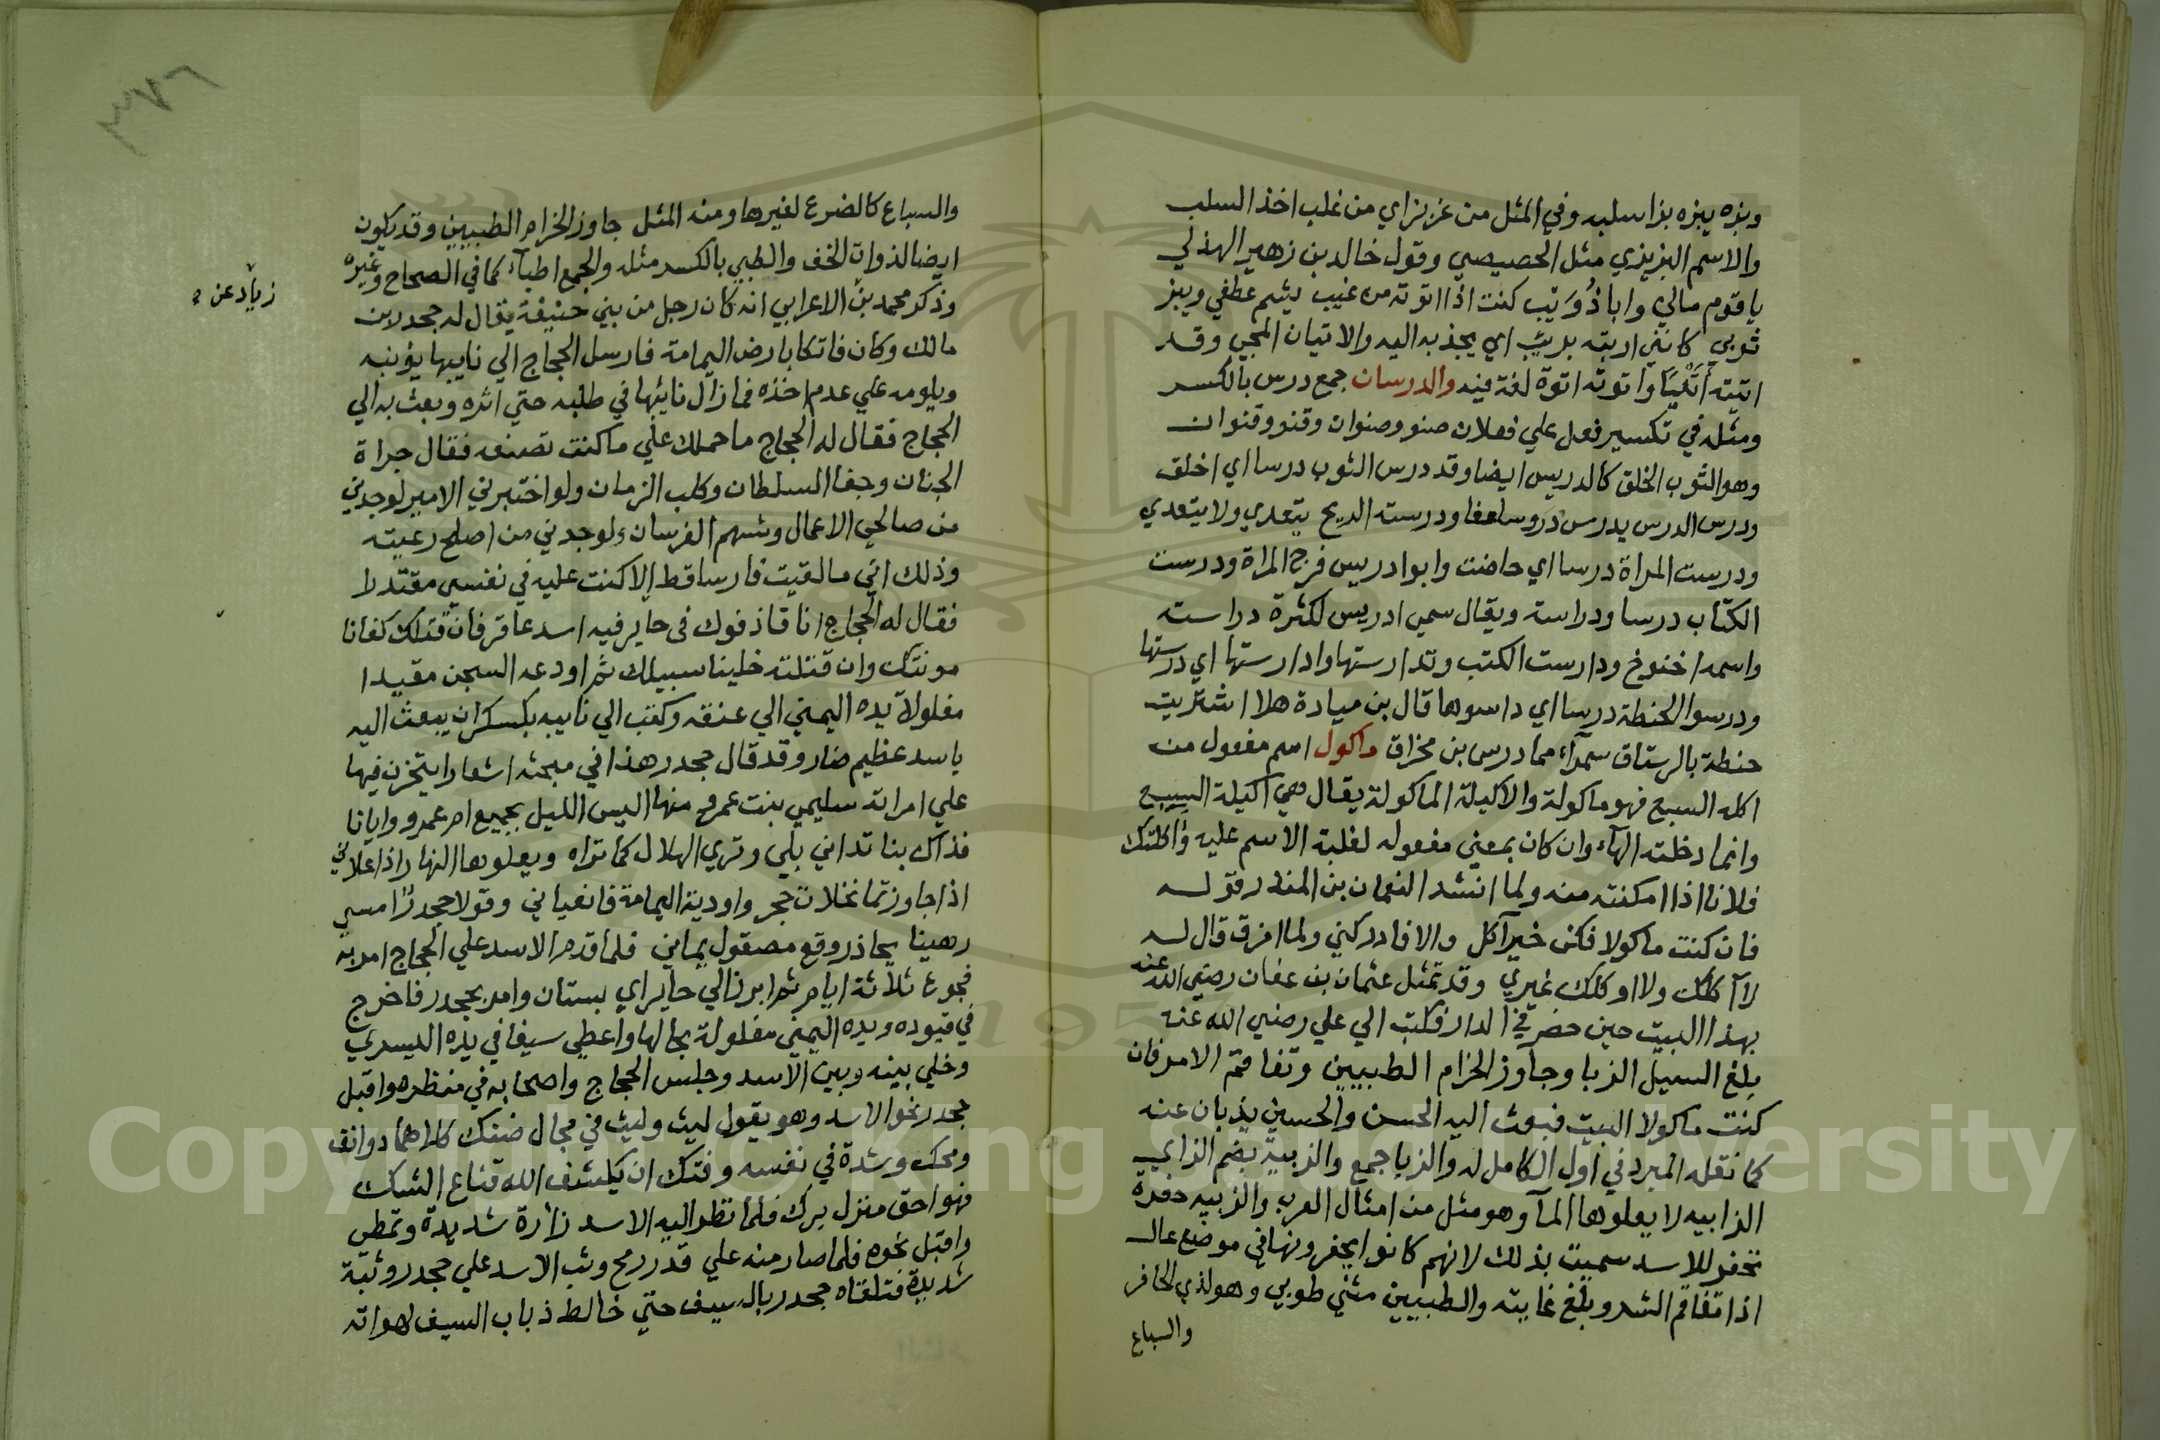 وبزه يبزه بزا سلبه وفي المثل من عز بزاي من غلب اخذ السلب
والاسم البزيزي مثل الحصيصي وقول خالد بن زهير الهذلي
يا قوم مالي وابا ذُوَيْب كنت اذا اتوته من غيب يشم عطفي ويبز
ثوبي كانني اربته بريب اي يجذبه اليه والاتيان المجي وقد
اتيته أتْيَا واتوته اتوة لغة فيه والدرسان جمع درس بالكسر
ومثله في تكسير فعل علي فعلان صنو وصنوان وقنو وقنوان
وهو الثوب الخلق كالدريس ايضا وقد درس الثوب درسا اي اخلق
ودرس الدرس يدرس دروسا عفا ودرسته الريح يتعدي ولا يتعدي
ودرست المراة درسا اي حاضت وابوا دريس فرج المراة ودرست
الكتاب درسا ودراسة ويقال سمي ادريس لكثرة دراسته
واسمه اخنوخ ودارست الكتب وتدارستها وادارستها اي درستها
ودرسوا الحنطة درسا اي داسوها قال بن ميادة هلا اشتريت
حنطة بالرستاق سمرآء مما درس بن مخراق ماكول اسم مفعول من
اكله السبع فهو ماكولة والاكيلة الماكولة يقال هي اكيلة السبع
وانما دخلته الهآء وان كان بمعني مفعوله لغلبة الاسم عليه واكلتك
فلانا اذا امكنته منه ولما انشد النعمان بن المنذر قوله
فان كنت ماكولا فكن خير آكل والا فادركني ولما امزق قال له
لا آكلك ولا اوكلك غيري وقد تمثل عثمان بن عفان رضي الله عنه
بهذا البيت حين حضر في الدار فكتب الي علي رضي الله عنه
بلغ السيل الزبا وجاوز الحزام الطبيين وتفاقم الامر فان
كنت ماكولا البيت فبعث اليه الحسن والحسين يذبان عنه
كما نقله المبرد في اول الكامل له والزبا جمع والزبية بضم الزاي
الزابيه لا يعلوها المآ وهو مثل من امثال العرب والزبيه حفرة
تحفر للاسد سميت بذلك لانهم كانوا يحفرونها في موضع عال
اذا تفاقم الشر وبلغ غايته والطبيين مثني طوبي وهو لذي الحافر
والسباع
والسباع كالضرع لغيرها ومنه المثل جاوز الحزام الطبيين وقد يكون
ايضا لذوات الخف والطبي بالكسر مثله والجمع اطبآء كما في الصحاح وغيره
وذكر محمد بن الاعرابي انه كان رجل من بني حنيفة يقال له جحدر بن
زياد عن
مالك وكان فاتكا بارض اليمامة فارسل الحجاج الي نايبها يؤنبه
ويلومه علي عدم اخذه فما زال نائبها في طلبه حتي اثره وبعث به الي
الحجاج فقال له الحجاج ما حملك علي ما كنت تصنعه فقال جراة
الجنان وجفا السلطان وكلب الزمان ولو اختبرني الامير لوجدني
من صالحي الاعمال وشهم الفرسان ولوجدني من اصلح رعيته
وذلك اني ما لقيت فارسا قط الا كنت عليه في نفسي مقتدرا
فقال له الحجاج انا قاذفوك في حاير فيه اسد عاقر فان قتلك كفانا
مونتك وان قتلته خلينا سبيلك ثم اودعه السجن مقيدا
مغلولة يده اليمني الي عنقه وكتب الي نايبه بكسكر ان يبعث اليه
باسد عظيم ضار وقد قال جحدر هذا في مبحثه اشعارا يتحزن فيها
علي امراته سليمي بنت عمرو منها اليس الليل يجميع ام عمرو وايانا
فذاك بنا تداني بلي وتري الهلال كما تراه ويعلوها النهار اذا علاني
اذا جاوزتما نخلات حجر واودية اليمامة فانعياني وقولا جحدر امسي
رهينا يحاذر وقع مصقول يماني فلما قدم الاسد علي الحجاج امر به
فجوع ثلاثة ايام ثم ابرز الي حاير اي بستان وامر بجحدر فاخرج
في قيوده ويده اليمني مغلولة بحالها واعطي سيفا في يده اليسري
وخلي بينه وبين الاسد وجلس الحجاج واصحابه في منظره واقبل
جحدر نحو الاسد وهو يقول ليث وليث في مجال ضنك كلاهما ذو انف
ومحك وشدة في نفسه وفتك ان يكشف الله قناع الشك
فهو احق منزل بترك فلما نظر اليه الاسد زارة شديدة وتمطي
واقبل نحوه فلما صار منه علي قدر رمح وثب الاسد علي جحدر وثبة
شديدة فتلقاه جحدر بالسيف حتي خالط ذباب السيف لهواته
٣٧٦
Copyright © King Saud University
1957